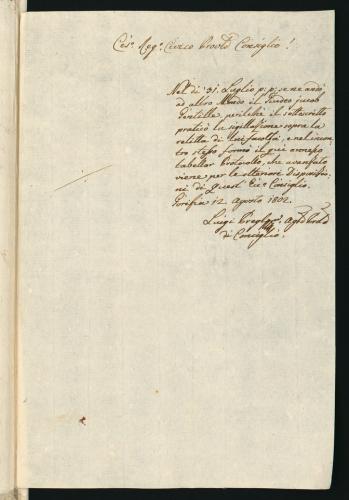 Ces. Reg. Civico Provl Consiglio!
Nel dì 31. Luglio p. p. se ne andò
ad altro Mondo il Giudeo Jacob
Pontilla, perilchè il sottoscritto
praticò la sigillazione sopra la
relitta di lui facoltà, e nel incon-
tro stesso formò il qui annesso
tabellar Protocollo, che avanzato
viene per le ulteriori disposizio-
ni di quest' Ces. Consiglio.
Gorizia 12. Agosto 1802.
Luigi
di Consiglio.